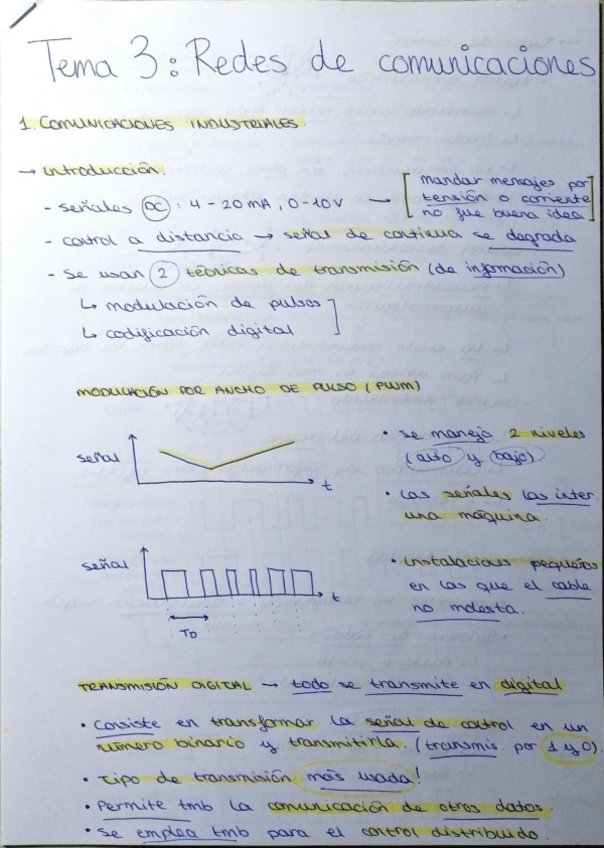 Tema 3: Redes de comunicaciones
1. COMUNICACIONES INDUSTRIALES.
→ introducción.
- señales DC : 4 - 20 mA, 0-10V → [mandar mensajes por
tensión o corriente
no fue buena idea]
- control a distancia → señal de continua se degrada
- se usan 2 técnicas de transmisión (de información)
↳ modulación de pulsos
↳ codificación digital
MODULACIÓN POR ANCHO DE PULSO (PWM)
señal
t
• se maneja 2 niveles
(alto y bajo)
• Las señales las inter.
una máquina.
señal
t
TD
• instalaciones pequeñas
en las que el cable
no molesta.
TRANSMISIÓN DIGITAL → todo se transmite en digital
• Consiste en transformar la señal de control en un
número binario y transmitirla. (transmis. por 1 y 0).
• Tipo de transmisión más usada!
• Permite tmb la comunicación de otros datos.
• Se emplea tmb para el control distribuido.